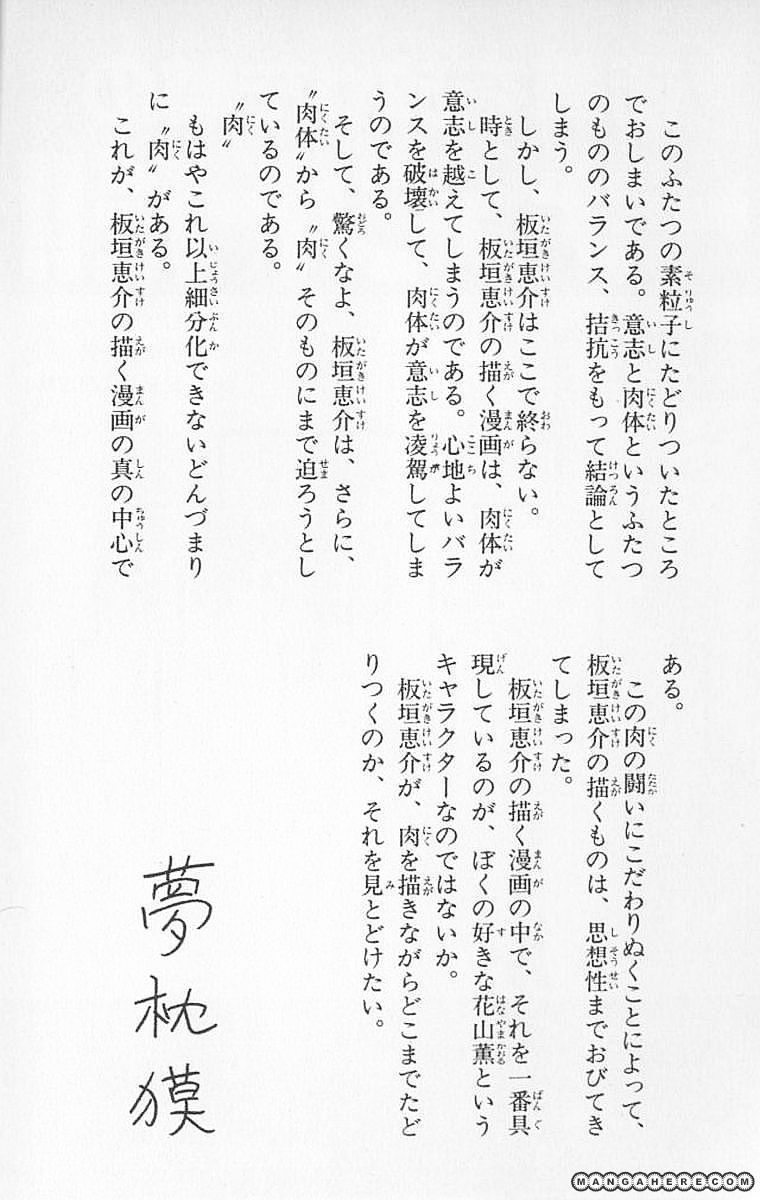 このふたつの素粒子にたどりついたところ
でおしまいである。意志と肉体というふたつ
のもののバランス、拮抗をもって結論として
しまう。
しかし、板垣恵介はここで終らない。
時として、板垣恵介の描く漫画は、肉体が
意志を越えてしまうのである。心地よいバラ
ンスを破壊して、肉体が意志を凌駕してしま
うのである。
そして、驚くなよ、板垣恵介は、さらに、
〝肉体〟から〝肉〟そのものにまで迫ろうとし
ているのである。
〝肉〟
もはやこれ以上細分化できないどんづまり
に〝肉〟がある。
これが、板垣恵介の描く漫画の真の中心で
ある。
この肉の闘いにこだわりぬくことによって、
板垣恵介の描くものは、思想性までおびてき
てしまった。
板垣恵介の描く漫画の中で、それを一番具
現しているのが、ぼくの好きな花山薫という
キャラクターなのではないか。
板垣恵介が、肉を描きながらどこまでたど
りつくのか、それを見とどけたい。
夢枕獏
MANGAHERE.COM